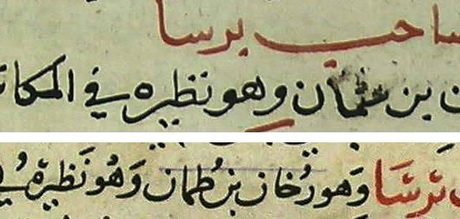 صاحب برسا
ن بن عثمان وهو نظيره في المكا
برسا وهو رُخان بن طمان وهُو نَظيره في